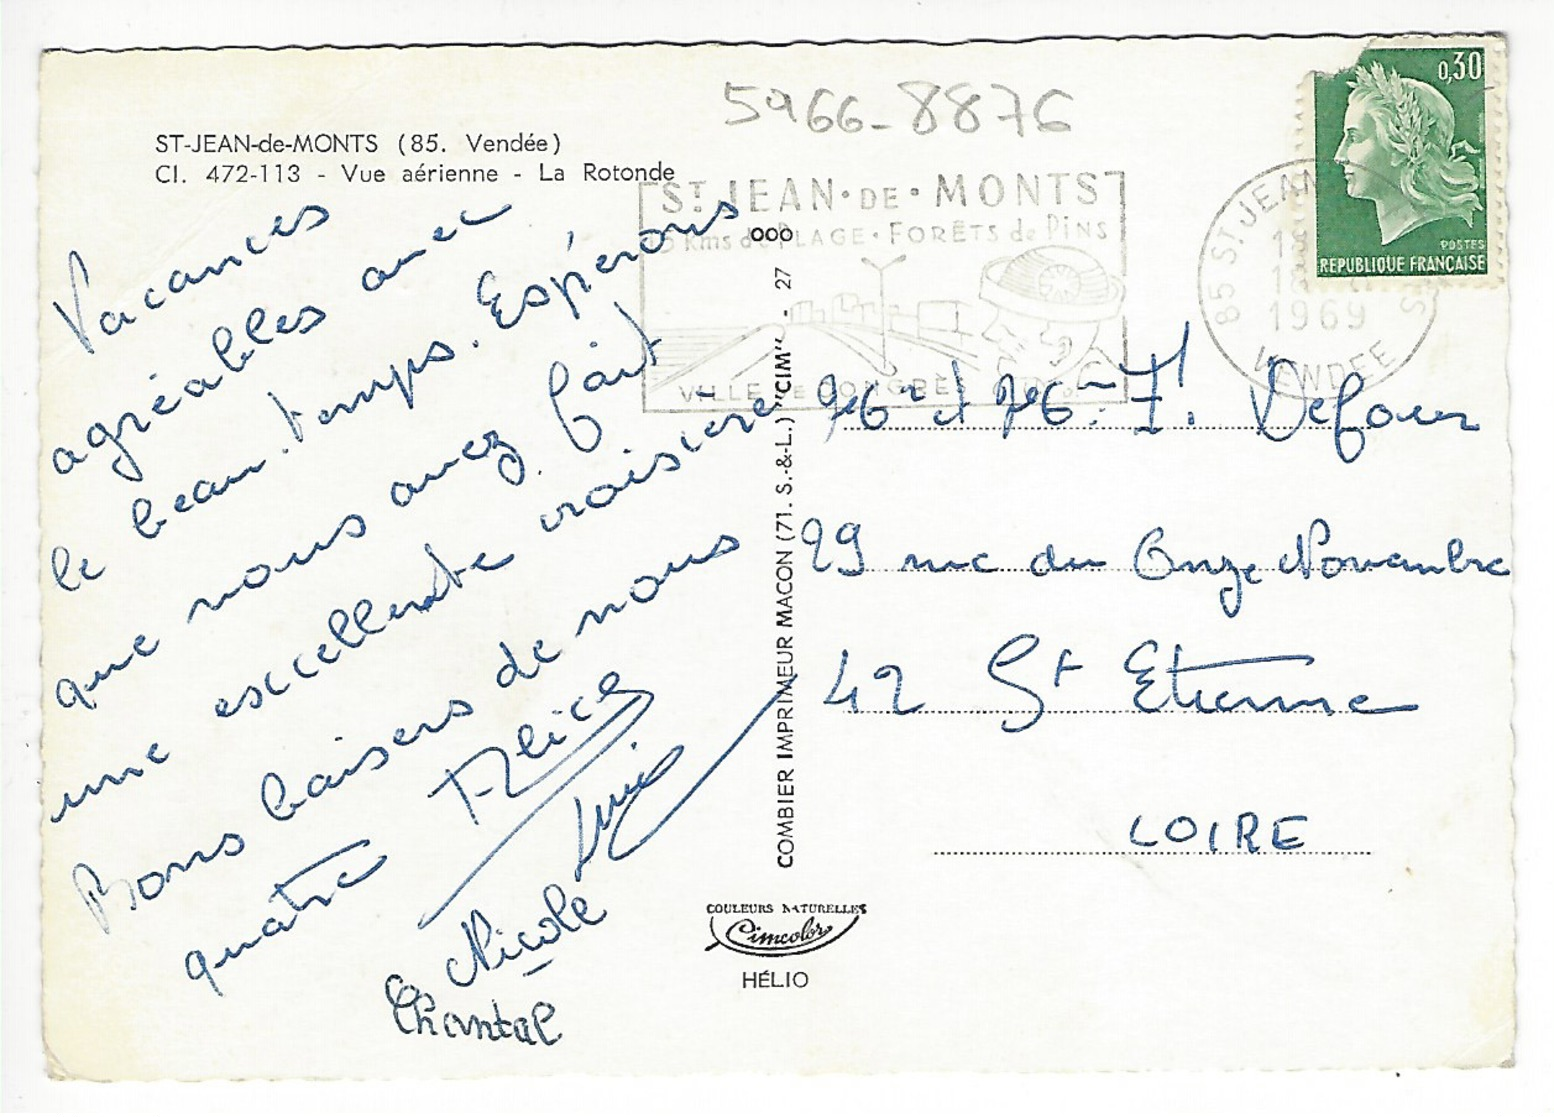 5966-8876
ST-JEAN-de-MONTS (85. Vendée)
Cl. 472-113 - Vue aérienne - La Rotonde
ST JEAN·DE·MONTS
PLAGE·FORÊTS de PINS
VILLE DE CONGRÈS
0,30
POSTES
REPUBLIQUE FRANÇAISE
85 ST JEAN
1969
VENDEE
Vacances
agréables avec
le beau temps. Espérons
que vous avez fait
une excellente croisière
Bons baisers de nous
quatre Alice
Nicole
Chantal
COMBIER IMPRIMEUR MACON (71. S.-&-L.) "CIM" - 27 000
COULEURS NATURELLES
Cimcolor
HÉLIO
Defour
29 rue du Onze Novembre
42 St Etienne
LOIRE